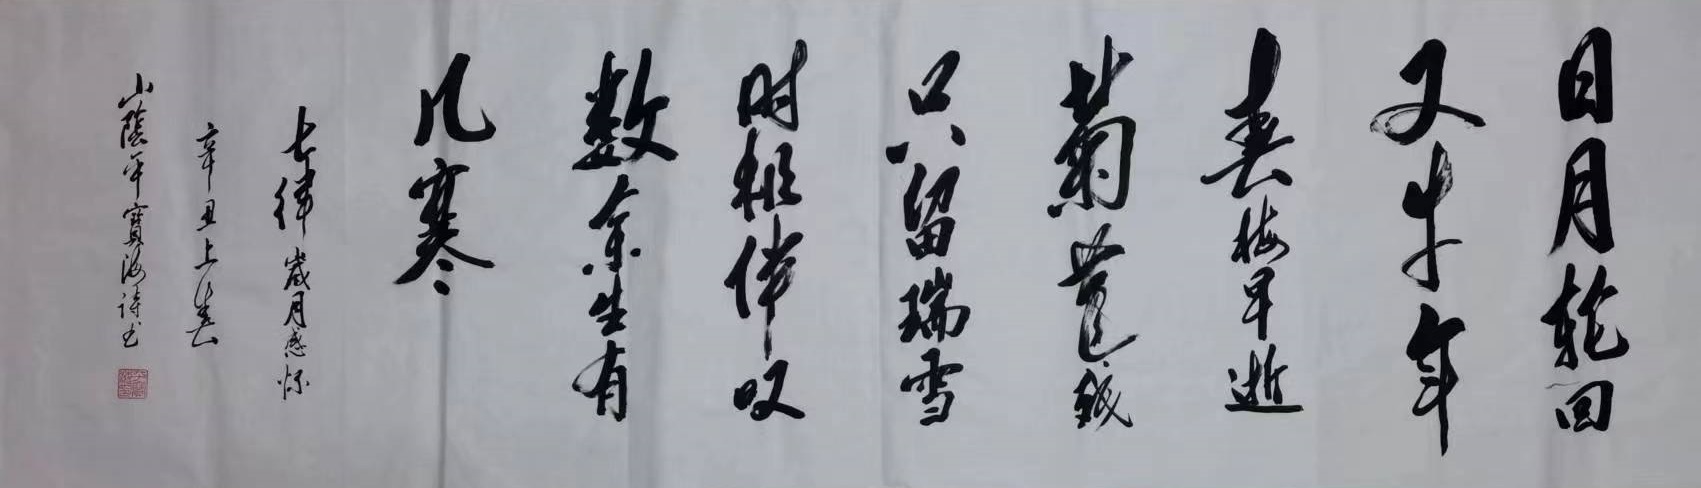 日月轮回
又牛年
春梅早逝
菊残
只留瑞雪
时相伴叹
数余生有
几寒
七律歲月感怀
辛丑上春
山陰平寶海诗书